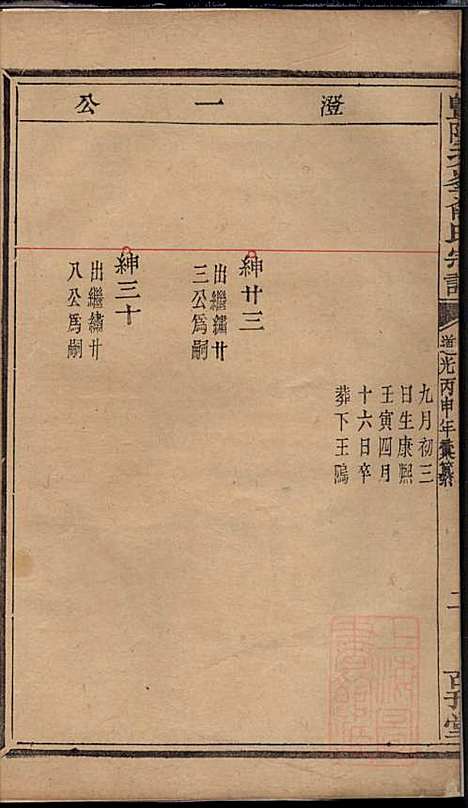 澄一公
九月初三
日生康熙
壬寅四月
十六日卒
葬下王鴎
紳廿三
出繼繡廿
三公爲嗣
紳三十
出繼繡廿
八公爲嗣
道光丙申年彙纂
二